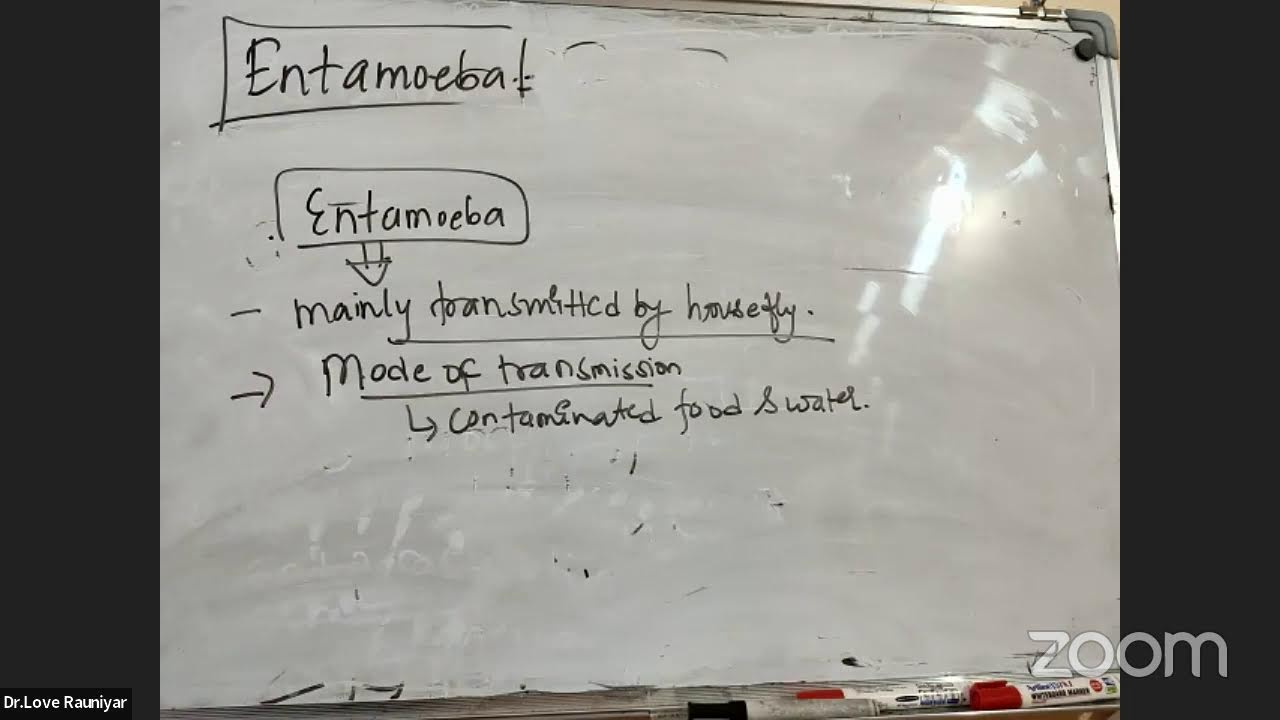 Entamoeba!
Entamoeba
- mainly transmitted by housefly.
→ Mode of transmission
↳ contaminated food & water.
zoom
Dr.Love Rauniyar